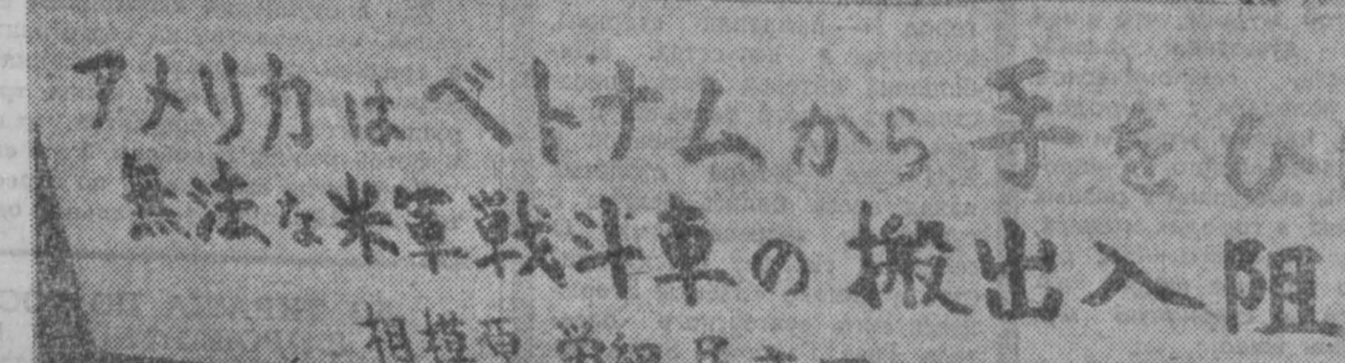 アメリカはベトナムから手をひ
無法な米軍戦斗車の搬出入阻
相模原